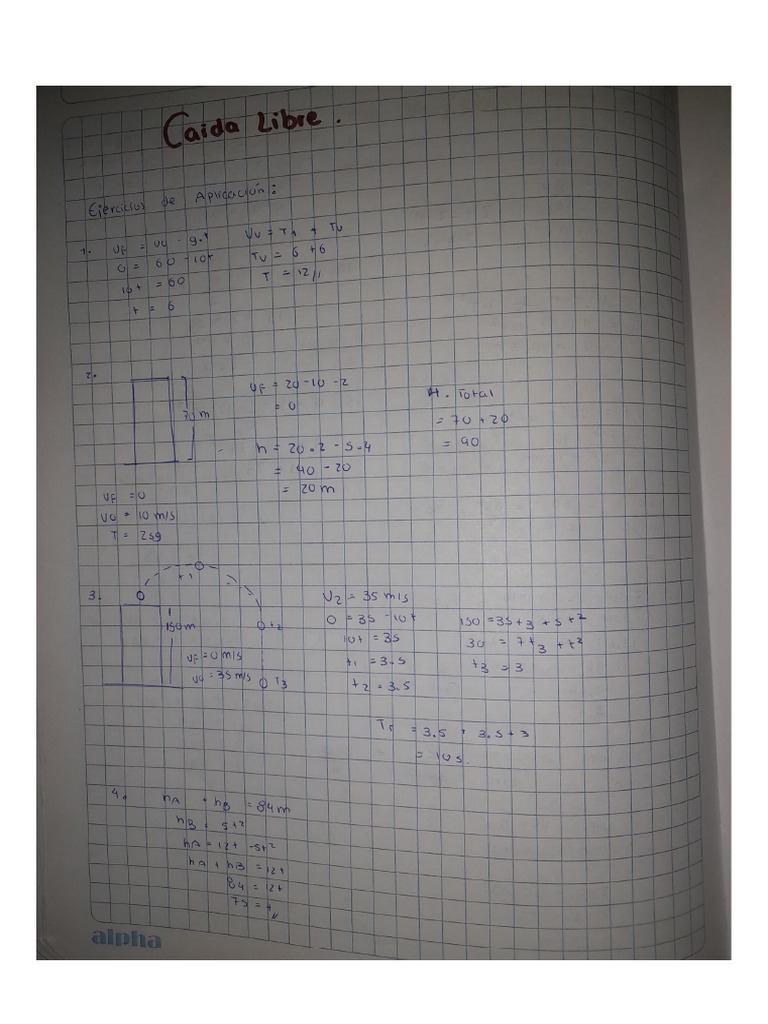 Caida Libre.
Ejercicios de Aplicación:
1. VF = VU - g.t
0 = 60 - 10t
10t = 60
t = 6
VV = TA + TV
TV = 6 + 6
T = 12//
2.
70 m
VF = 0
VO = 10 m/s
T = 2sg
VF = 20 - 10 - 2
= 0
h = 20.2 - 5.4
= 40 - 20
= 20m
H. Total
= 70 + 20
= 90
3.
t1
150m
t2
VF = 0 m/s
VO = 35 m/s
T3
V2 = 35 m/s
0 = 35 - 10t
10t = 35
t1 = 3.5
t2 = 3.5
150 = 35t3 + 5t2
30 = 7t3 + t2
t3 = 3
= 3.5 + 3.5 + 3
= 10s.
4. hA + hB = 84m
hB = 5t2
hA = 12t - 5t2
hA + hB = 12t
84 = 12t
7s = t//
alpha